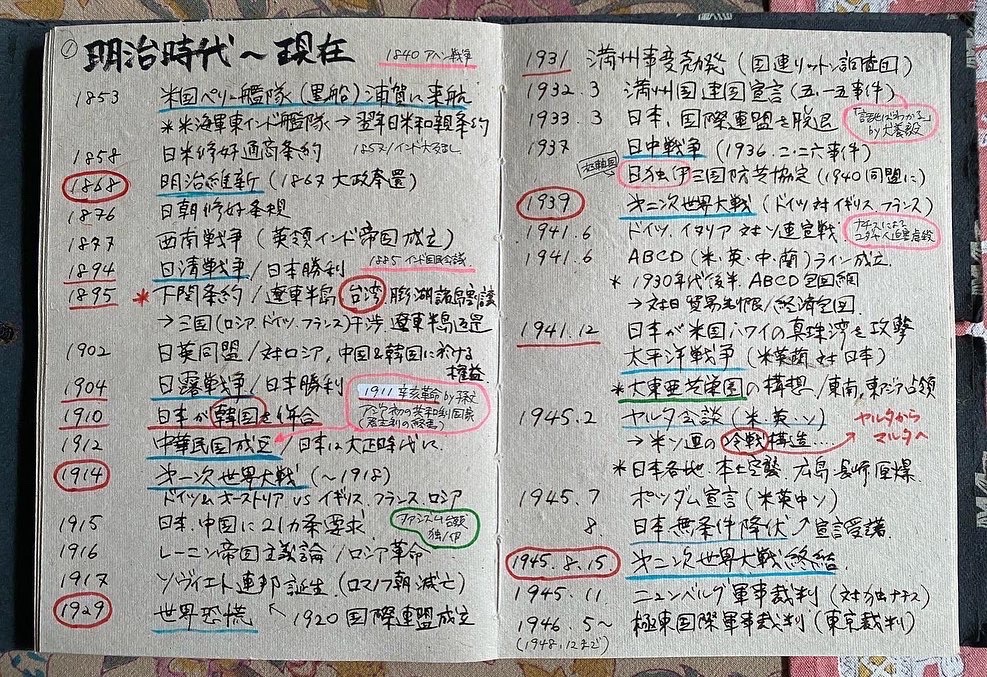 ① 明治時代〜現在
1840 アヘン戦争
1853 米国ペリー艦隊(黒船)浦賀に来航
*米海軍東インド艦隊→翌年日米和親条約
1858 日米修好通商条約 1857/インド大反乱
1868 明治維新(1867 大政奉還)
1876 日朝修好条規
1877 西南戦争(英領インド帝国成立)
1894 日清戦争/日本勝利 1885 インド国民会議
1895 *下関条約/遼東半島 台湾 膨湖諸島割譲
→三国(ロシア.ドイツ.フランス)干渉 遼東半島返還
1902 日英同盟/対ロシア,中国&韓国に於ける
権益
1904 日露戦争/日本勝利
1911 辛亥革命 by 孫文
アジア初の共和制国家
(君主制の終焉)
1910 日本が韓国を併合
1912 中華民国成立/日本は大正時代に
1914 第一次世界大戦(〜1918)
ドイツ.オーストリア VS イギリス.フランス.ロシア
1915 日本.中国に21カ条要求
ファシズム台頭
独/伊
1916 レーニン帝国主義論/ロシア革命
1917 ソヴィエト連邦誕生(ロマノフ朝滅亡)
1929 世界恐慌 ← 1920 国際連盟成立
1931 満州事変勃発(国連リットン調査団)
1932.3 満州国建国宣言(五.一五事件)
1933.3 日本、国際連盟を脱退
「話せばわかる」
by 犬養毅
1937 日中戦争(1936 二・二六事件)
枢軸国 日独伊三国防共協定(1940 同盟に)
1939 第二次世界大戦(ドイツ対イギリス.フランス)
1941.6 ドイツ、イタリア 対ソ連宣戦.
ナチスによる
ユダヤ人迫害虐殺
1941.6 ABCD(米・英・中・蘭)ライン成立.
*1930年代後半 ABCD包囲網
→対日貿易制限/経済包囲.
1941.12 日本が米国ハワイの真珠湾を攻撃
太平洋戦争(米英蘭 対日本)
*大東亜共栄圏の構想/東南,東アジア占領
1945.2 ヤルタ会談(米・英・ソ)
→米ソ連の冷戦構造....
ヤルタから
マルタへ
*日本各地・本土空襲.広島・長崎原爆
1945.7 ポツダム宣言(米英中ソ)
8. 日本無条件降伏 ↗宣言受諾
1945.8.15. 第二次世界大戦終結.
1945.11. ニュンベルグ軍事裁判(対独ナチス)
1946.5〜 極東国際軍事裁判(東京裁判)
(1948.12まで)